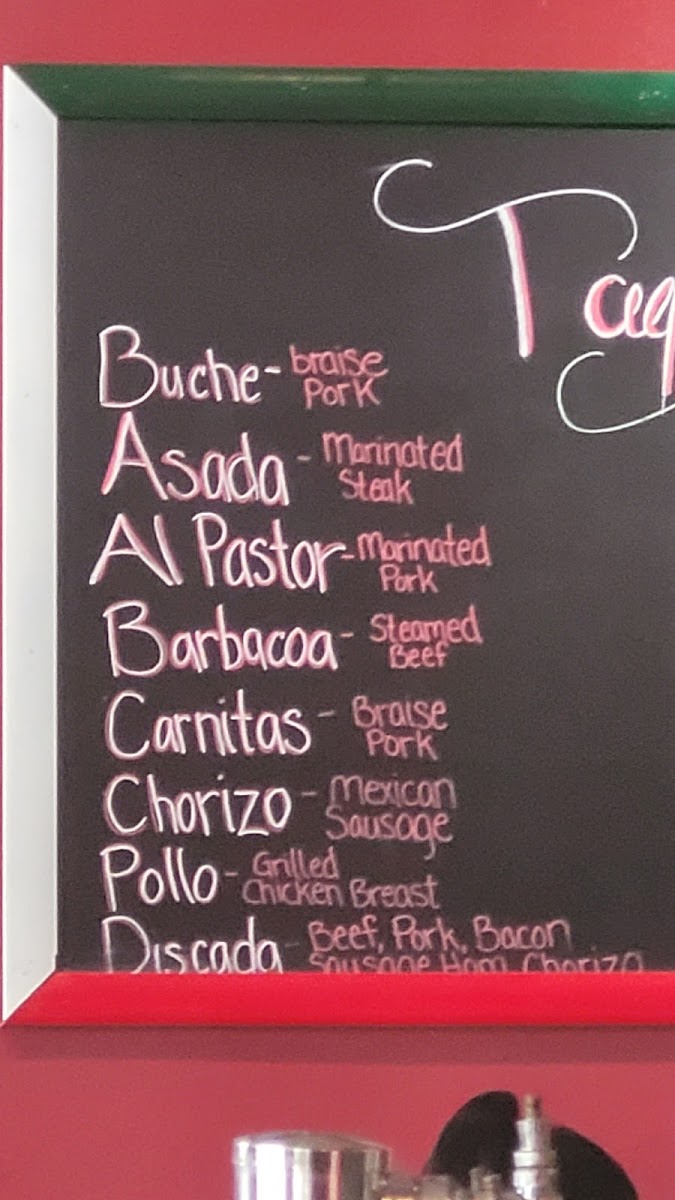 Buche - braise
Pork
Asada - Marinated
Steak
Al Pastor - Marinated
Pork
Barbacoa - Steamed
Beef
Carnitas - Braise
Pork
Chorizo - Mexican
Sausage
Pollo - Grilled
Chicken Breast
Discada - Beef, Pork, Bacon
Sausage Ham Chorizo